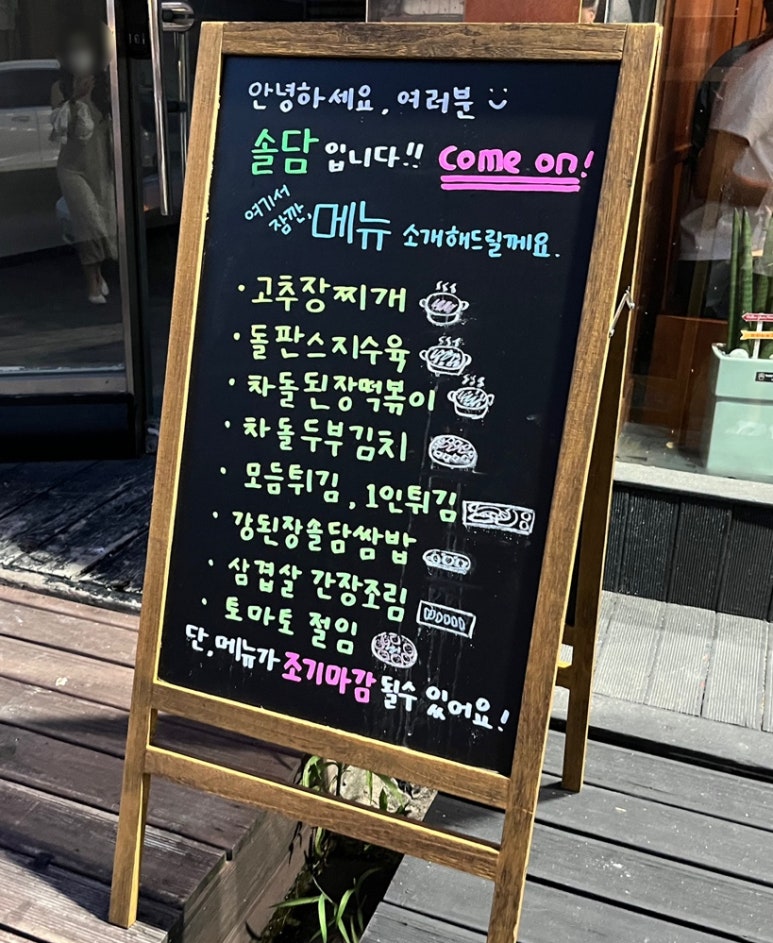 안녕하세요, 여러분
솔담입니다!! Come on!
여기서 잠깐. 메뉴 소개해드릴께요.
· 고추장찌개
· 돌판스지수육
· 차돌된장떡볶이
· 차돌두부김치
· 모듬튀김, 1인튀김
· 강된장솔담쌈밥
· 삼겹살 간장조림
· 토마토 절임
단, 메뉴가 조기마감 될수 있어요!